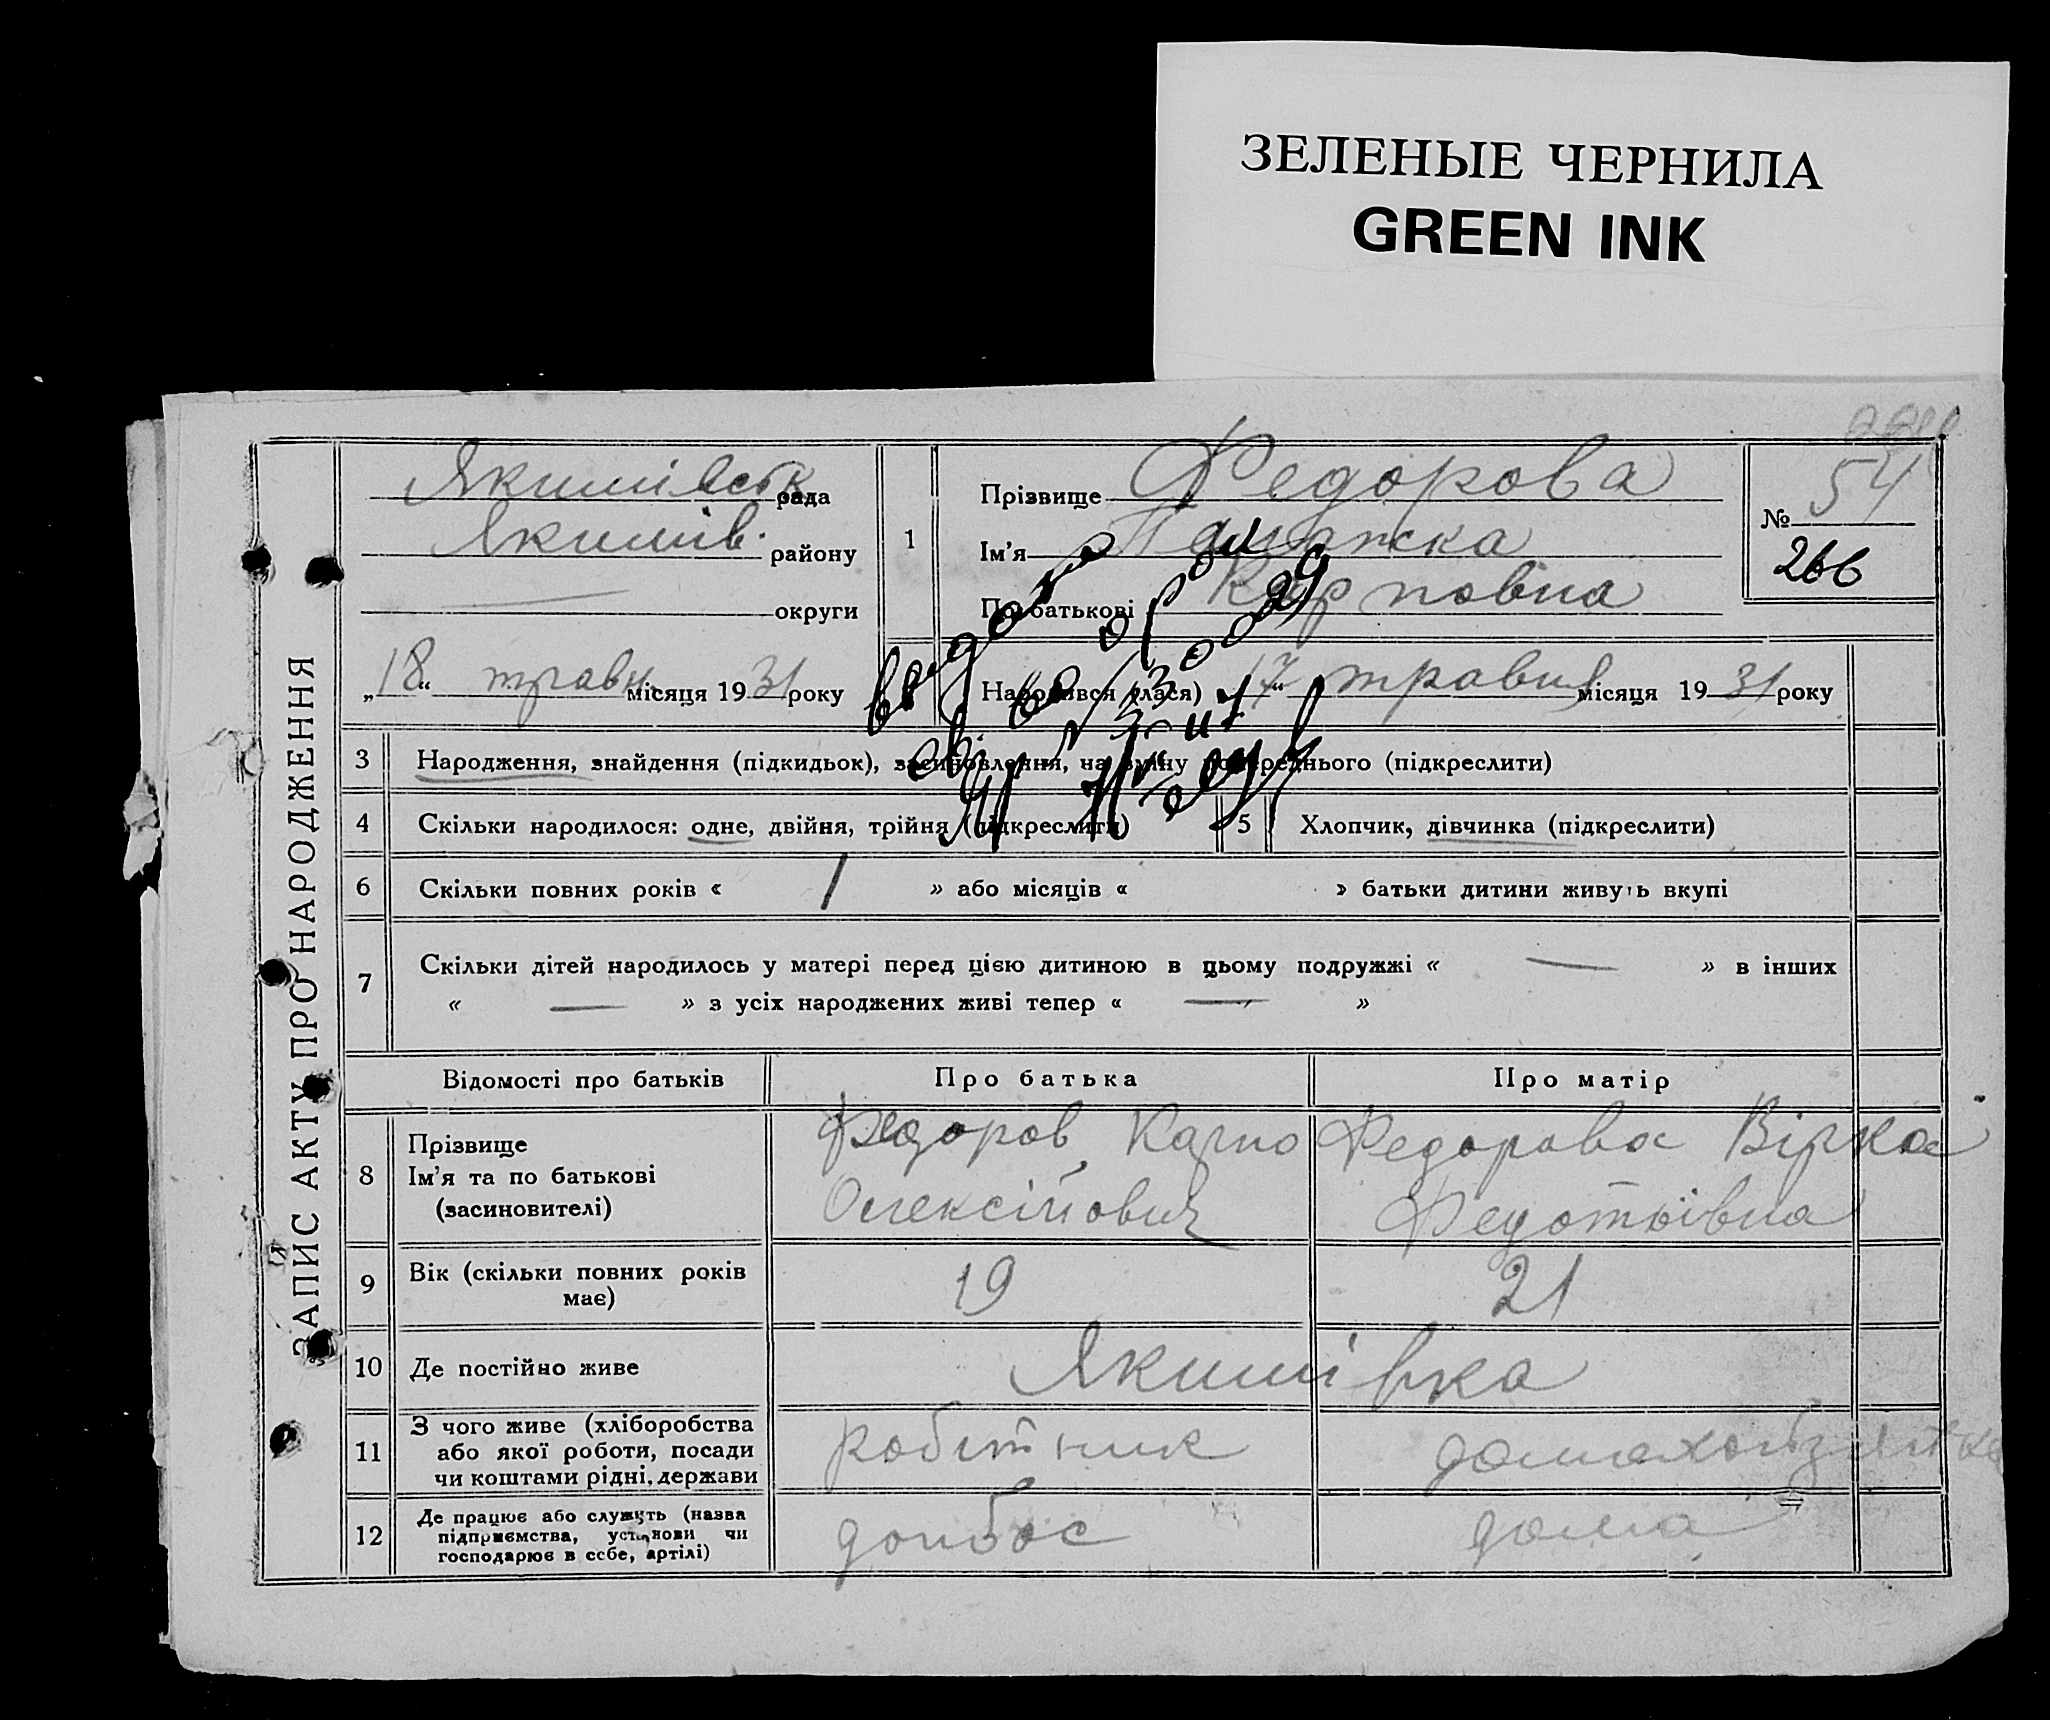 ЗЕЛЕНЫЕ ЧЕРНИЛА
GREEN INK
ЗАПИС АКТУ ПРО НАРОДЖЕННЯ
Якимівськ рада
Якимів. району
округи
„18“ травн. місяця 1931 року
1
Прізвище Федорова
Ім’я
По батькові Карповна
№ 54
266
Народився (лася) 17“ травня місяця 1931 року
3 Народження, знайдення (підкидьок), засиновлення, на зміну попереднього (підкреслити)
4 Скільки народилося: одне, двійня, трійня (підкреслити)
5 Хлопчик, дівчинка (підкреслити)
6 Скільки повних років « 1 » або місяців « » батьки дитини живуть вкупі
7 Скільки дітей народилось у матері перед цією дитиною в цьому подружжі « — » в інших
« — » з усіх народжених живі тепер « — »
Відомості про батьків Про батька Про матір
8 Прізвище
Ім’я та по батькові
(засиновителі)
Федоров Карпо
Олексійович
Федорова Вірка
Федотьівна
9 Вік (скільки повних років
має)
19 21
10 Де постійно живе Якимівка
11 З чого живе (хліборобства
або якої роботи, посади
чи коштами рідні, держави
робітник
домохозяйка
12 Де працює або служить (назва
підприємства, установи чи
господарює в себе, артілі)
донбас дома